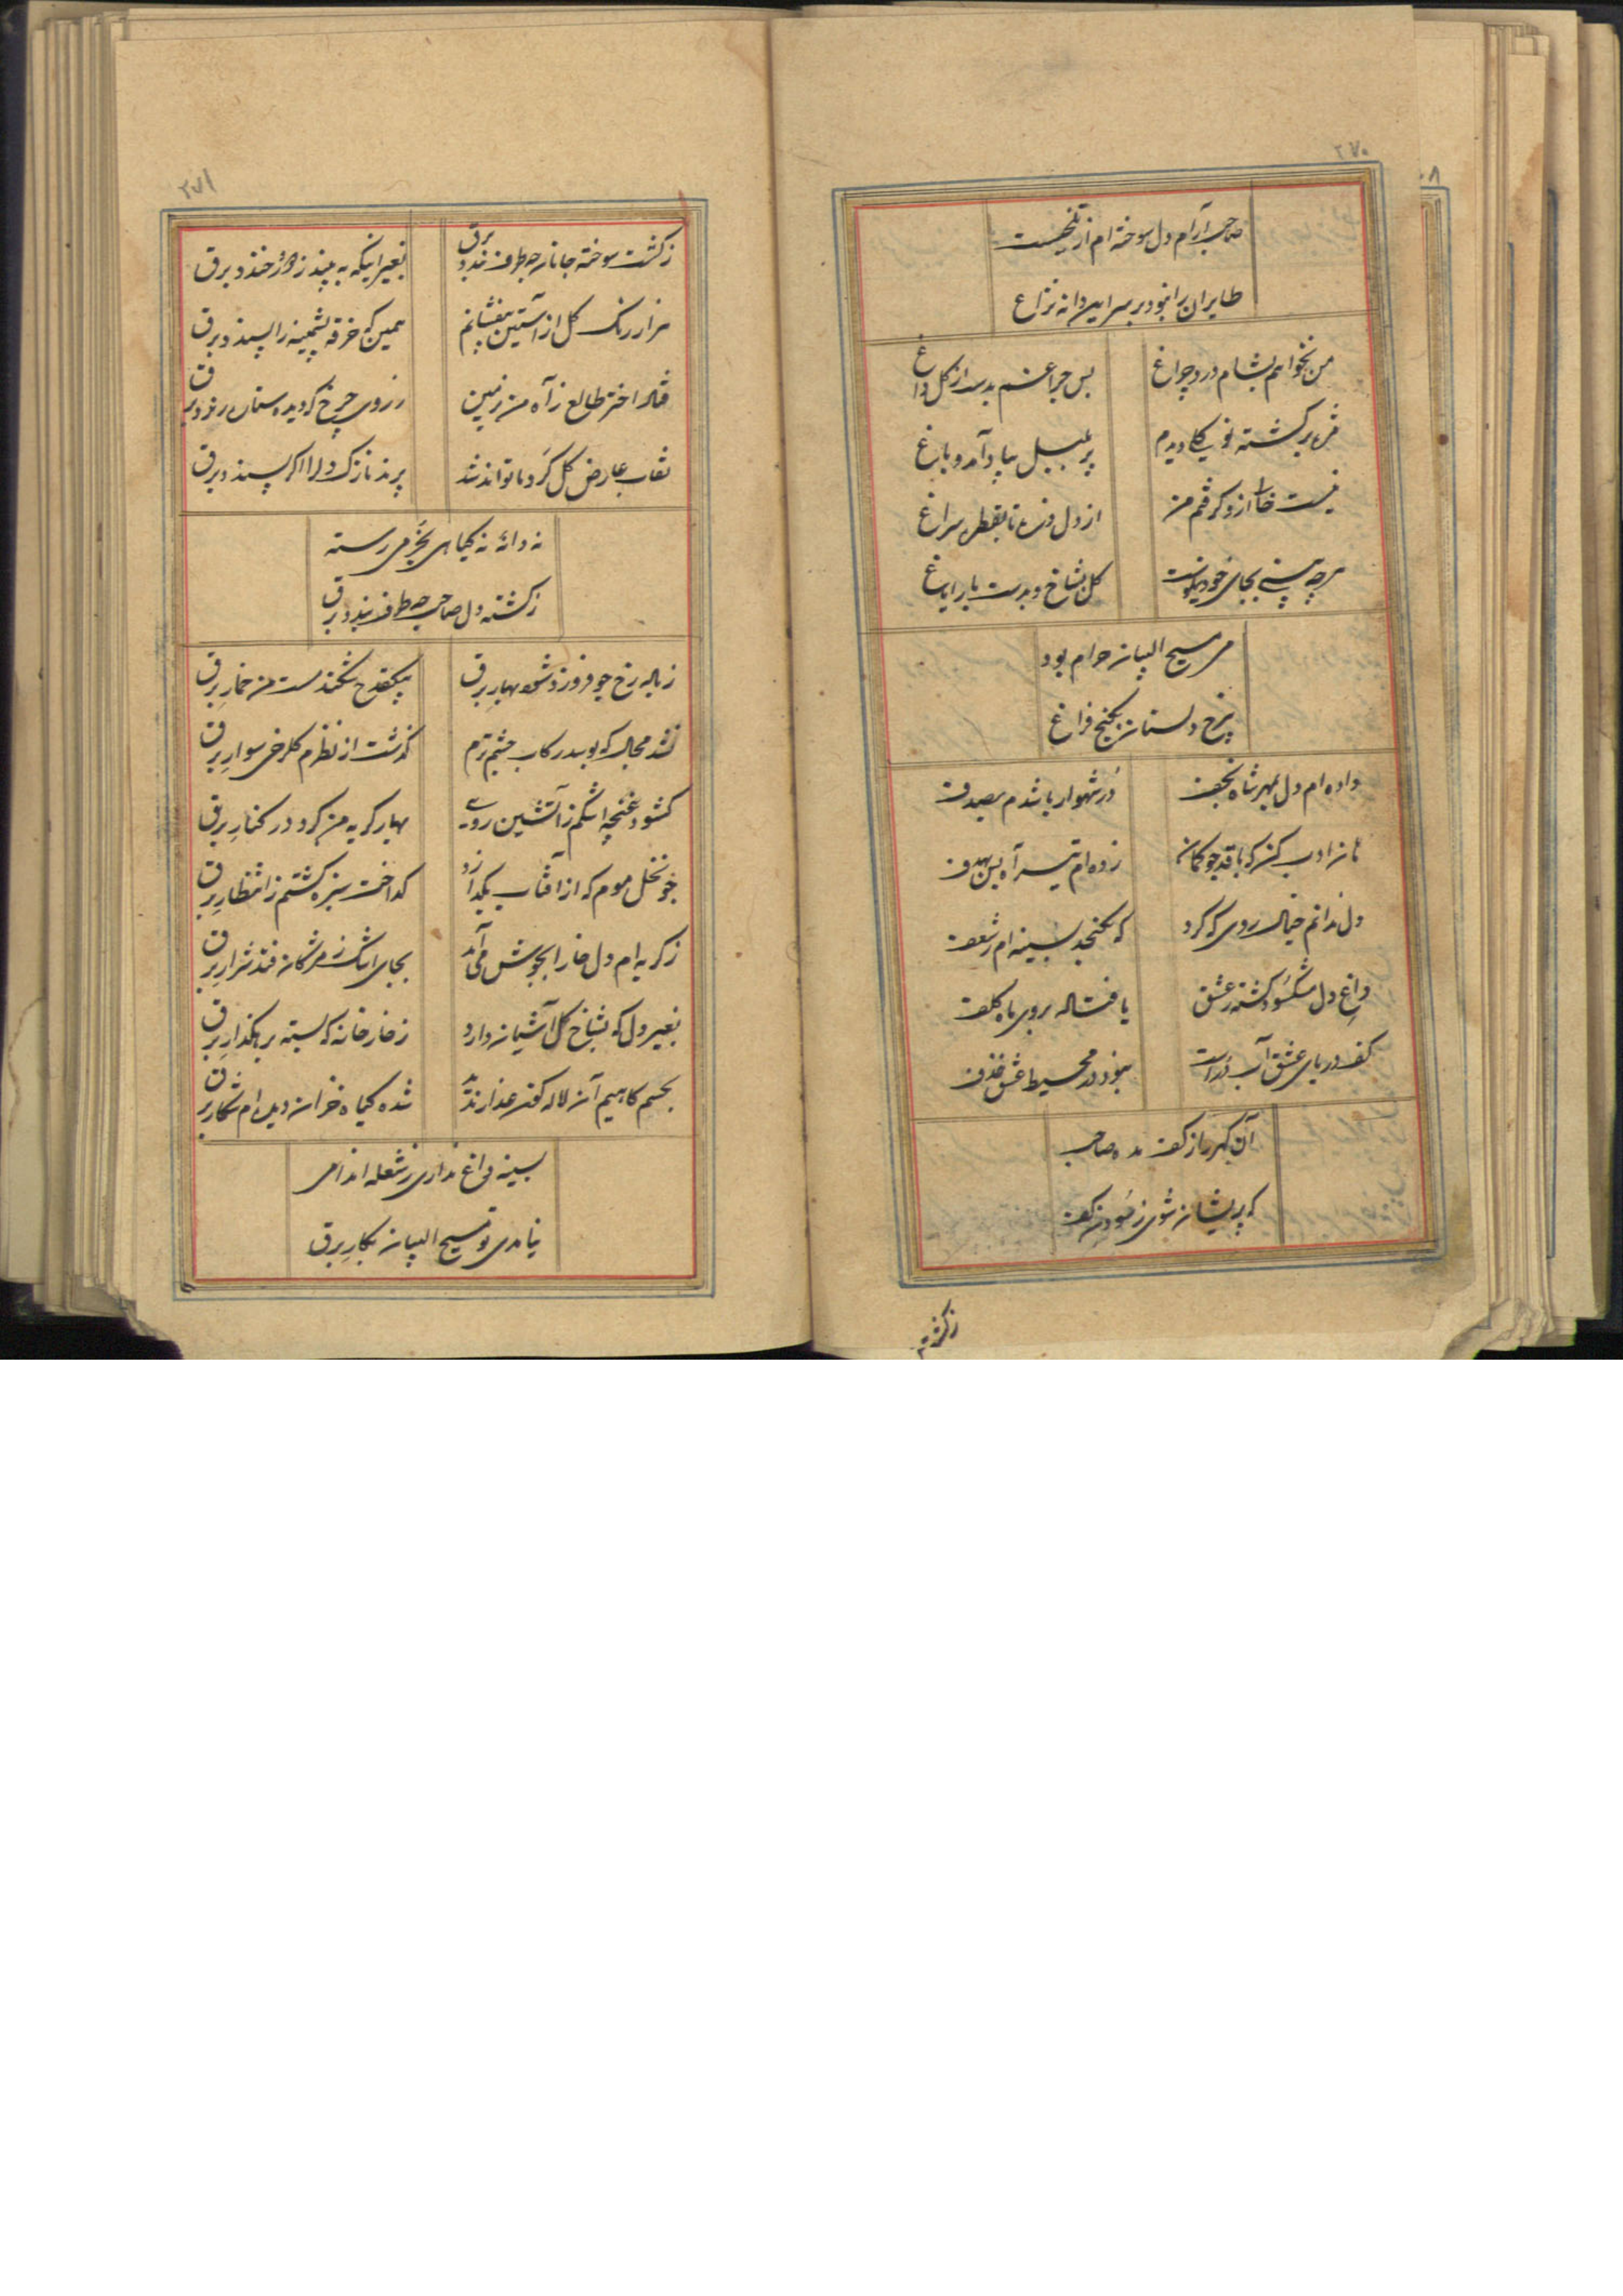 ۲۷۰
صاحب آرام دل سوخته ام از تلخیست
طایران را نبود بر سر این دانه نزاع
من نخواهم بشام درد چراغ
بس چراغم بدست از گل داغ
مژه برگشته خوب دیدم
پر بلبل بیاد آمد و باغ
نیست خالی از و کر قم من
از دل ذره تا بقطره سراغ
هرچه بینی بجای خود نیکوست
گل بشاخ و بدست یار ایاغ
می مسیح البیان حرام بود
برخ دلستان بکنج فراغ
داده ام دل بمهر شاه نجف
در شهوار یا شدم بصدف
نازم ادب کنید که با قد چو کمان
زده ام تیر آه بس بهدف
دل ندانم خیال روی که کرد
که نگنجد بسینه ام ز شغف
داغ دل مشکسود گشته ز عشق
یا فتاده بروی ماه کلف
کف دریای عشق آب در است
نبود در محیط عشق خذف
آن گهر را ز کف مده صاحب
که پریشان شوی ز سودن کف
ز کشت
۲۷۱
ز کشت سوخته جانان چه طرف بندد برق
بغیر اینکه به بیند ز دور خندد برق
هزار رنگ گل از آستین بیفشانم
همین که خرقه پشمینه را پسندد برق
فتاد اختر طالع ز آه من بزمین
ز روی چرخ که دیده بدینسان رندد برق
نقاب عارض گل گرد ما تواند شد
پرند نازک دل را اگر پسندد برق
نه دانه نه گیاهی بخرمی رسته
ز کشته دل صاحب چه طرف بندد برق
ز باده رخ چو فروزد شود بهار برق
بیکقدح شکند مست من خمار برق
نشد مجال که بوسد رکاب چشم ترم
گذشت از نظرم گلرخی سوار برق
گشود غنچه اشکم ز آتشین رویی
بهار گریه من کرد در کنار برق
چو نخل موم که از آفتاب بگدازد
گداخت سبزه کشتم ز انتظار برق
ز گریه ام دل خارا بجوش می آمد
بجای اشک ز مژگان فتد شرار برق
بغیر دل که بشاخ گل آشیان دارد
ز خار خانه که بسته بر هگذار برق
بجسم کاهیم آن لاله گون عذار نزد
شده گیاه خزان دیده ام شکار برق
بسینه داغ نداری ز شعله اندامی
نیامدی تو مسیح البیان بکار برق